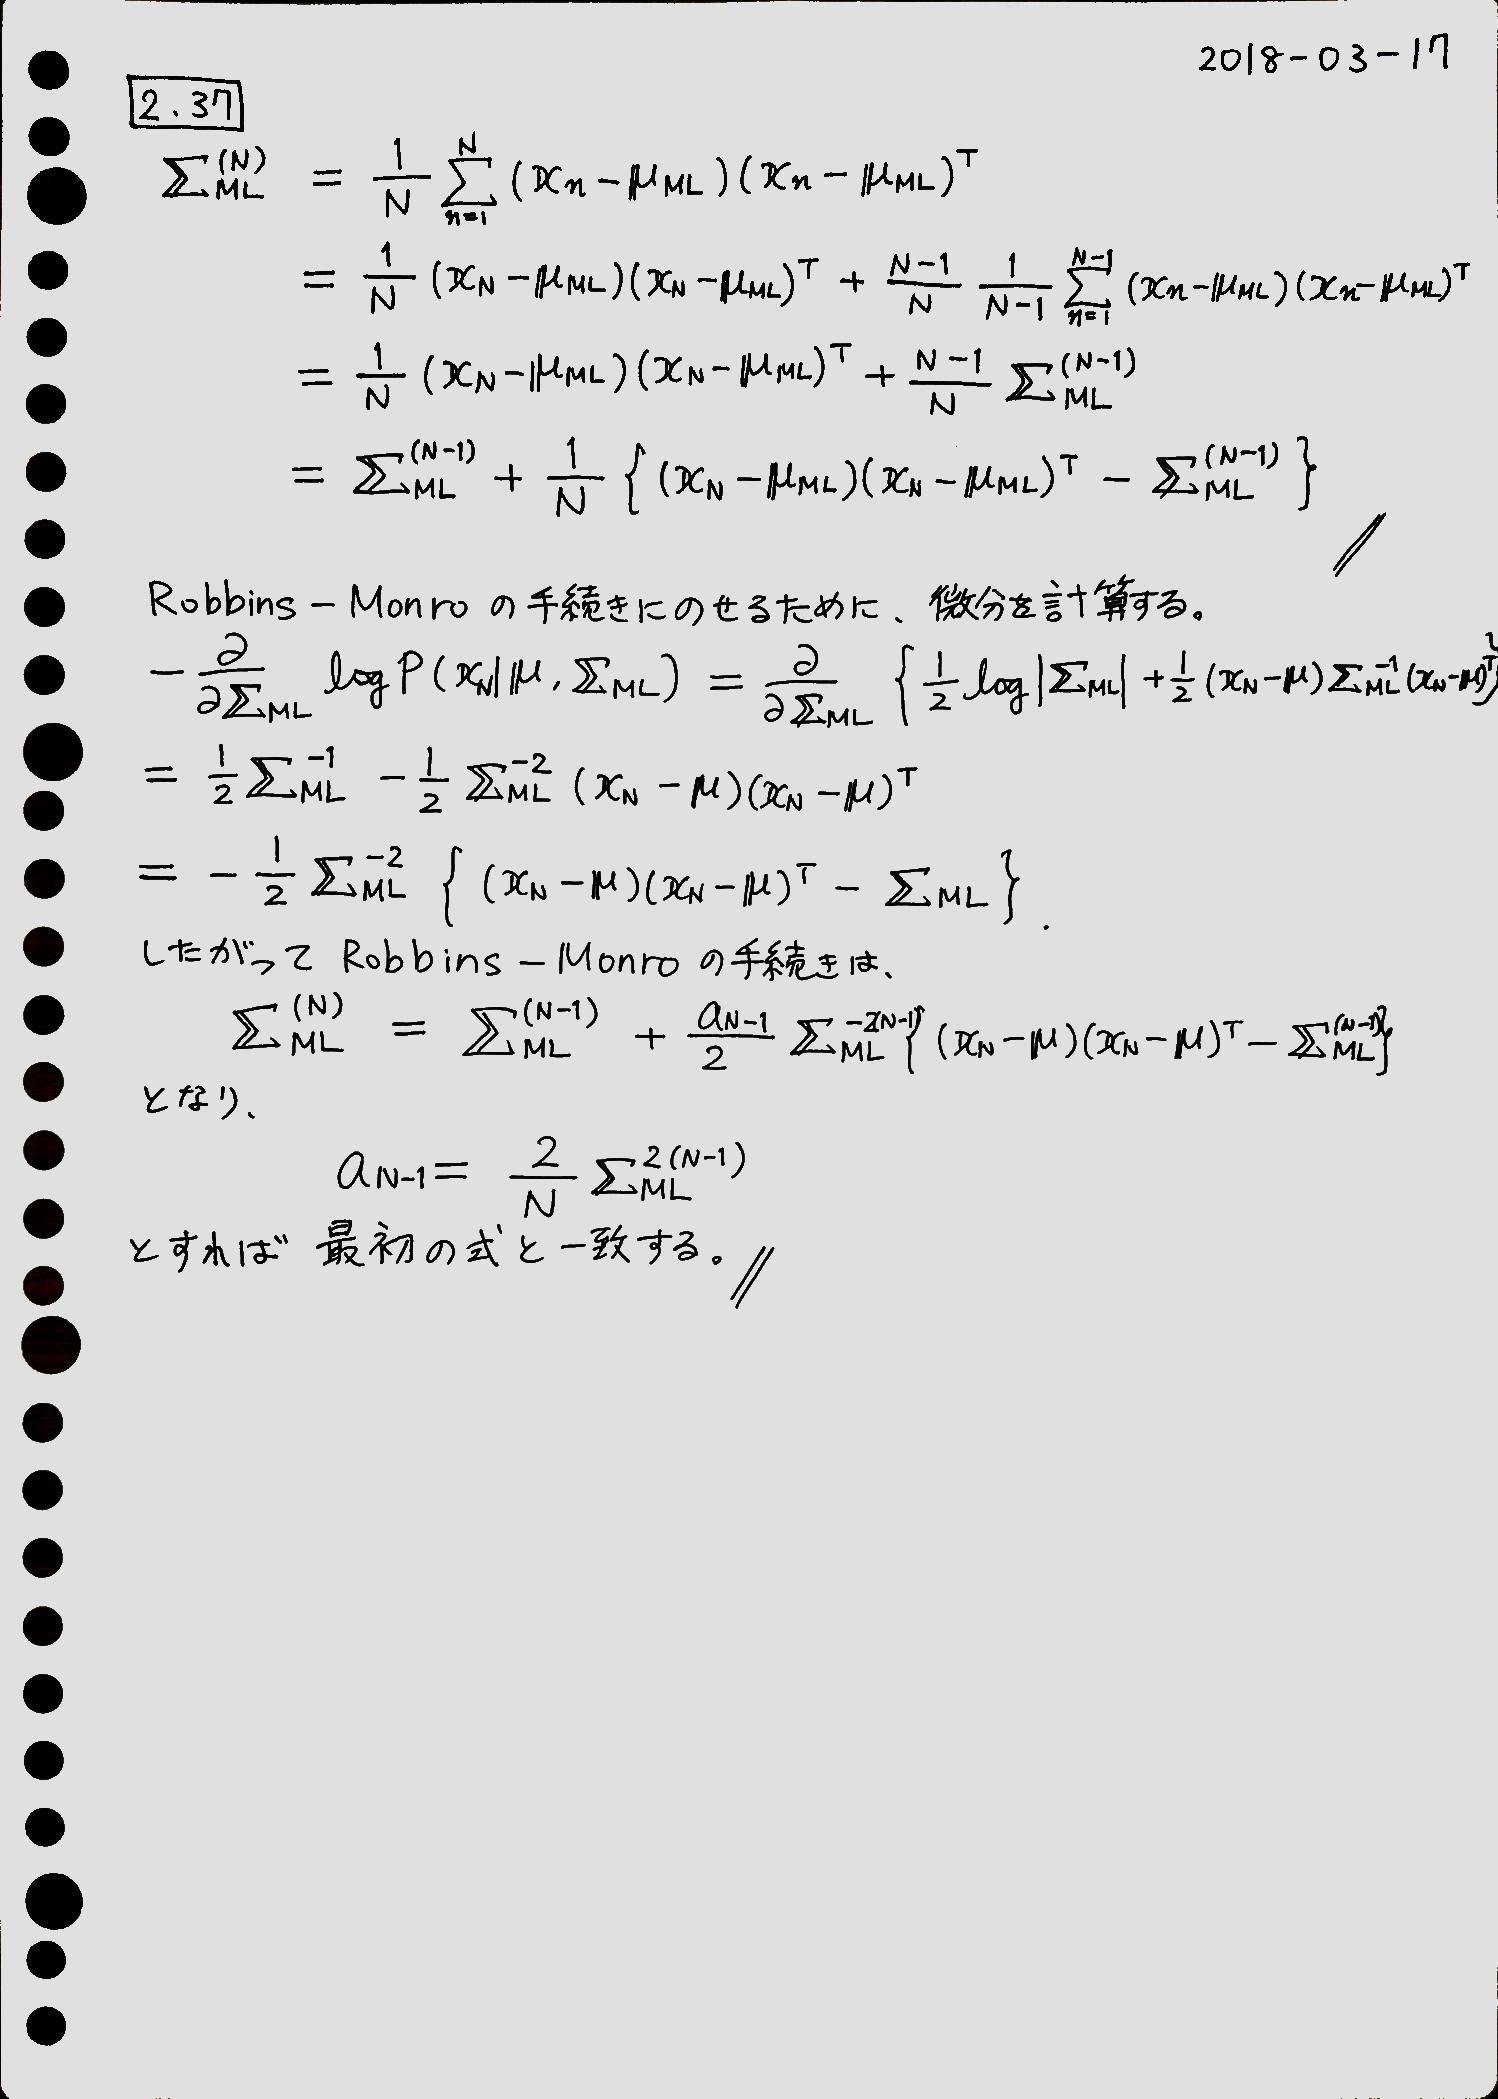 2018-03-17
2.37
Σ_ML^(N) = 1/N Σ_{n=1}^{N} (x_n - μ_ML)(x_n - μ_ML)^T
= 1/N (x_N - μ_ML)(x_N - μ_ML)^T + (N-1)/N 1/(N-1) Σ_{n=1}^{N-1} (x_n - μ_ML)(x_n - μ_ML)^T
= 1/N (x_N - μ_ML)(x_N - μ_ML)^T + (N-1)/N Σ_ML^(N-1)
= Σ_ML^(N-1) + 1/N { (x_N - μ_ML)(x_N - μ_ML)^T - Σ_ML^(N-1) } //
Robbins-Monro の手続きにのせるために、微分を計算する。
- ∂/∂Σ_ML log P(x_N | μ, Σ_ML) = ∂/∂Σ_ML { 1/2 log|Σ_ML| + 1/2 (x_N - μ) Σ_ML^-1 (x_N - μ)^T }
= 1/2 Σ_ML^-1 - 1/2 Σ_ML^-2 (x_N - μ)(x_N - μ)^T
= - 1/2 Σ_ML^-2 { (x_N - μ)(x_N - μ)^T - Σ_ML }.
したがって Robbins-Monro の手続きは、
Σ_ML^(N) = Σ_ML^(N-1) + a_{N-1}/2 Σ_ML^-2(N-1) { (x_N - μ)(x_N - μ)^T - Σ_ML^(N-1) }
となり、
a_{N-1} = 2/N Σ_ML^2(N-1)
とすれば 最初の式と一致する。//